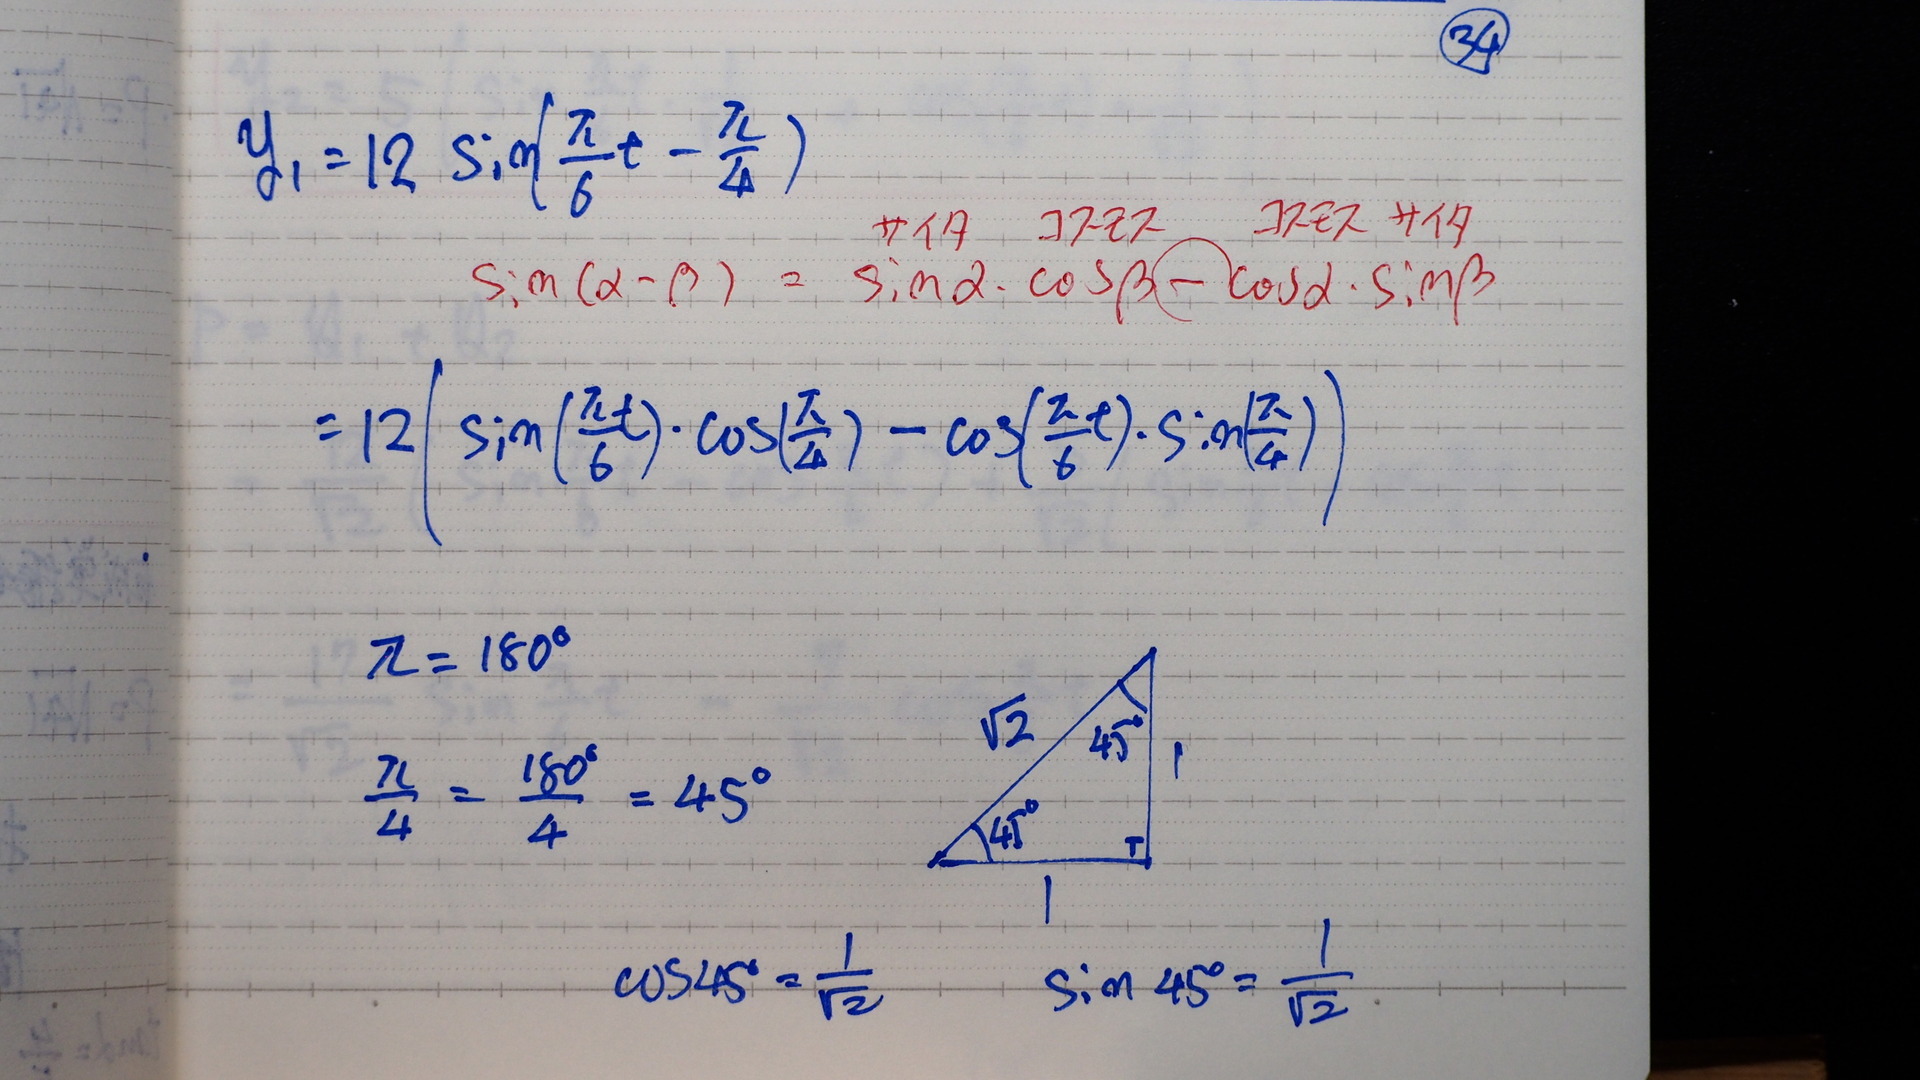 34
y₁ = 12 sin(π/6 t - π/4)
サイタ コスモス コスモス サイタ
sin(α-β) = sinα・cosβ - cosα・sinβ
= 12( sin(π/6 t)・cos(π/4) - cos(π/6 t)・sin(π/4) )
π = 180°
π/4 = 180°/4 = 45°
√2 45° 1
45°
1
cos45° = 1/√2 sin 45° = 1/√2